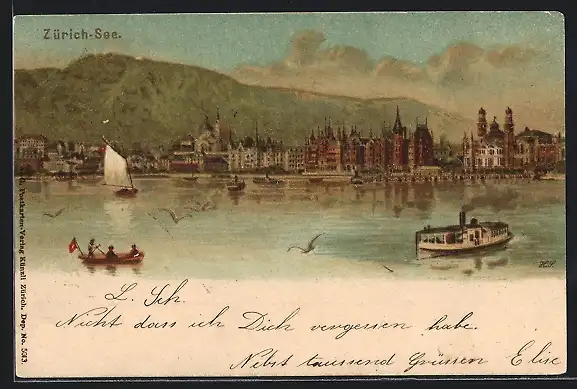 Zürich-See.
L. Sch.
Nicht dass ich Dich vergessen habe.
Nebst tausend Grüssen Elise
Postkarten-Verlag Künzli Zürich. Dep. No. 5013.